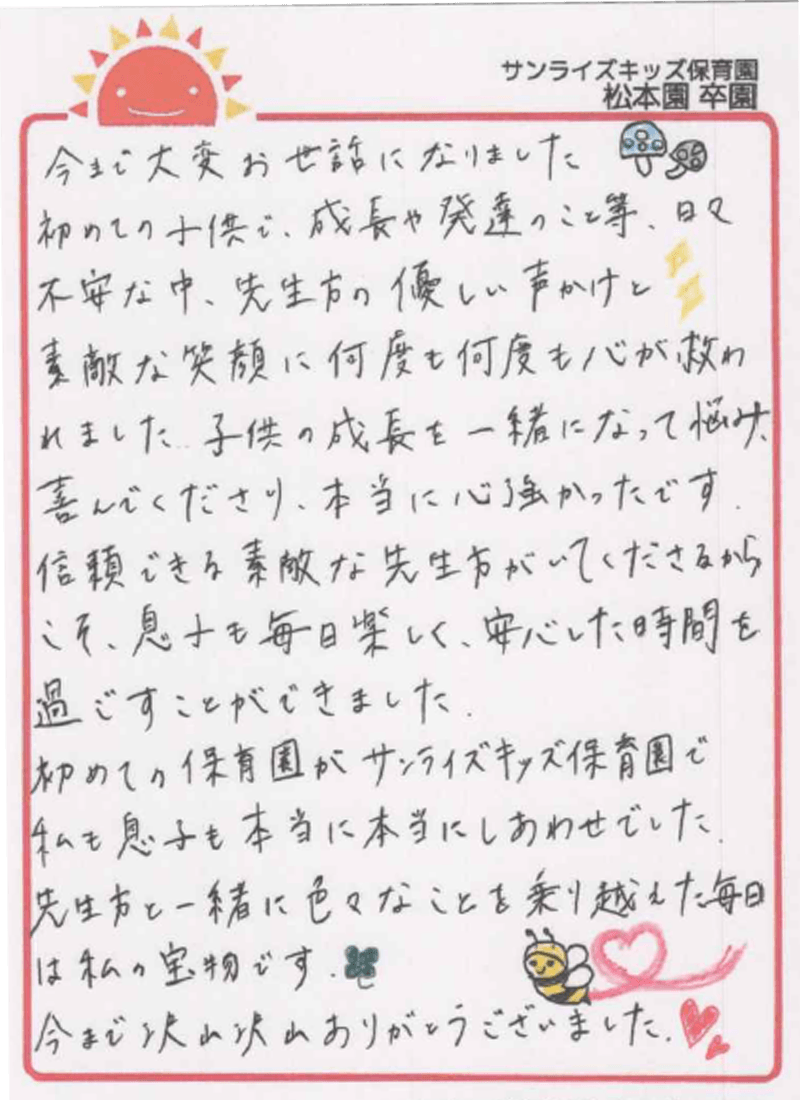 サンライズキッズ保育園
松本園 卒園
今まで大変お世話になりました
初めての子供で、成長や発達のこと等、日々
不安な中、先生方の優しい声かけと
素敵な笑顔に何度も何度も心が救わ
れました。子供の成長を一緒になって悩み、
喜んでくださり、本当に心強かったです。
信頼できる素敵な先生方がいてくださるから
こそ、息子も毎日楽しく、安心した時間を
過ごすことができました。
初めての保育園がサンライズキッズ保育園で
私も息子も本当に本当にしあわせでした。
先生方と一緒に色々なことを乗り越えた毎日
は私の宝物です。
今まで沢山沢山ありがとうございました。